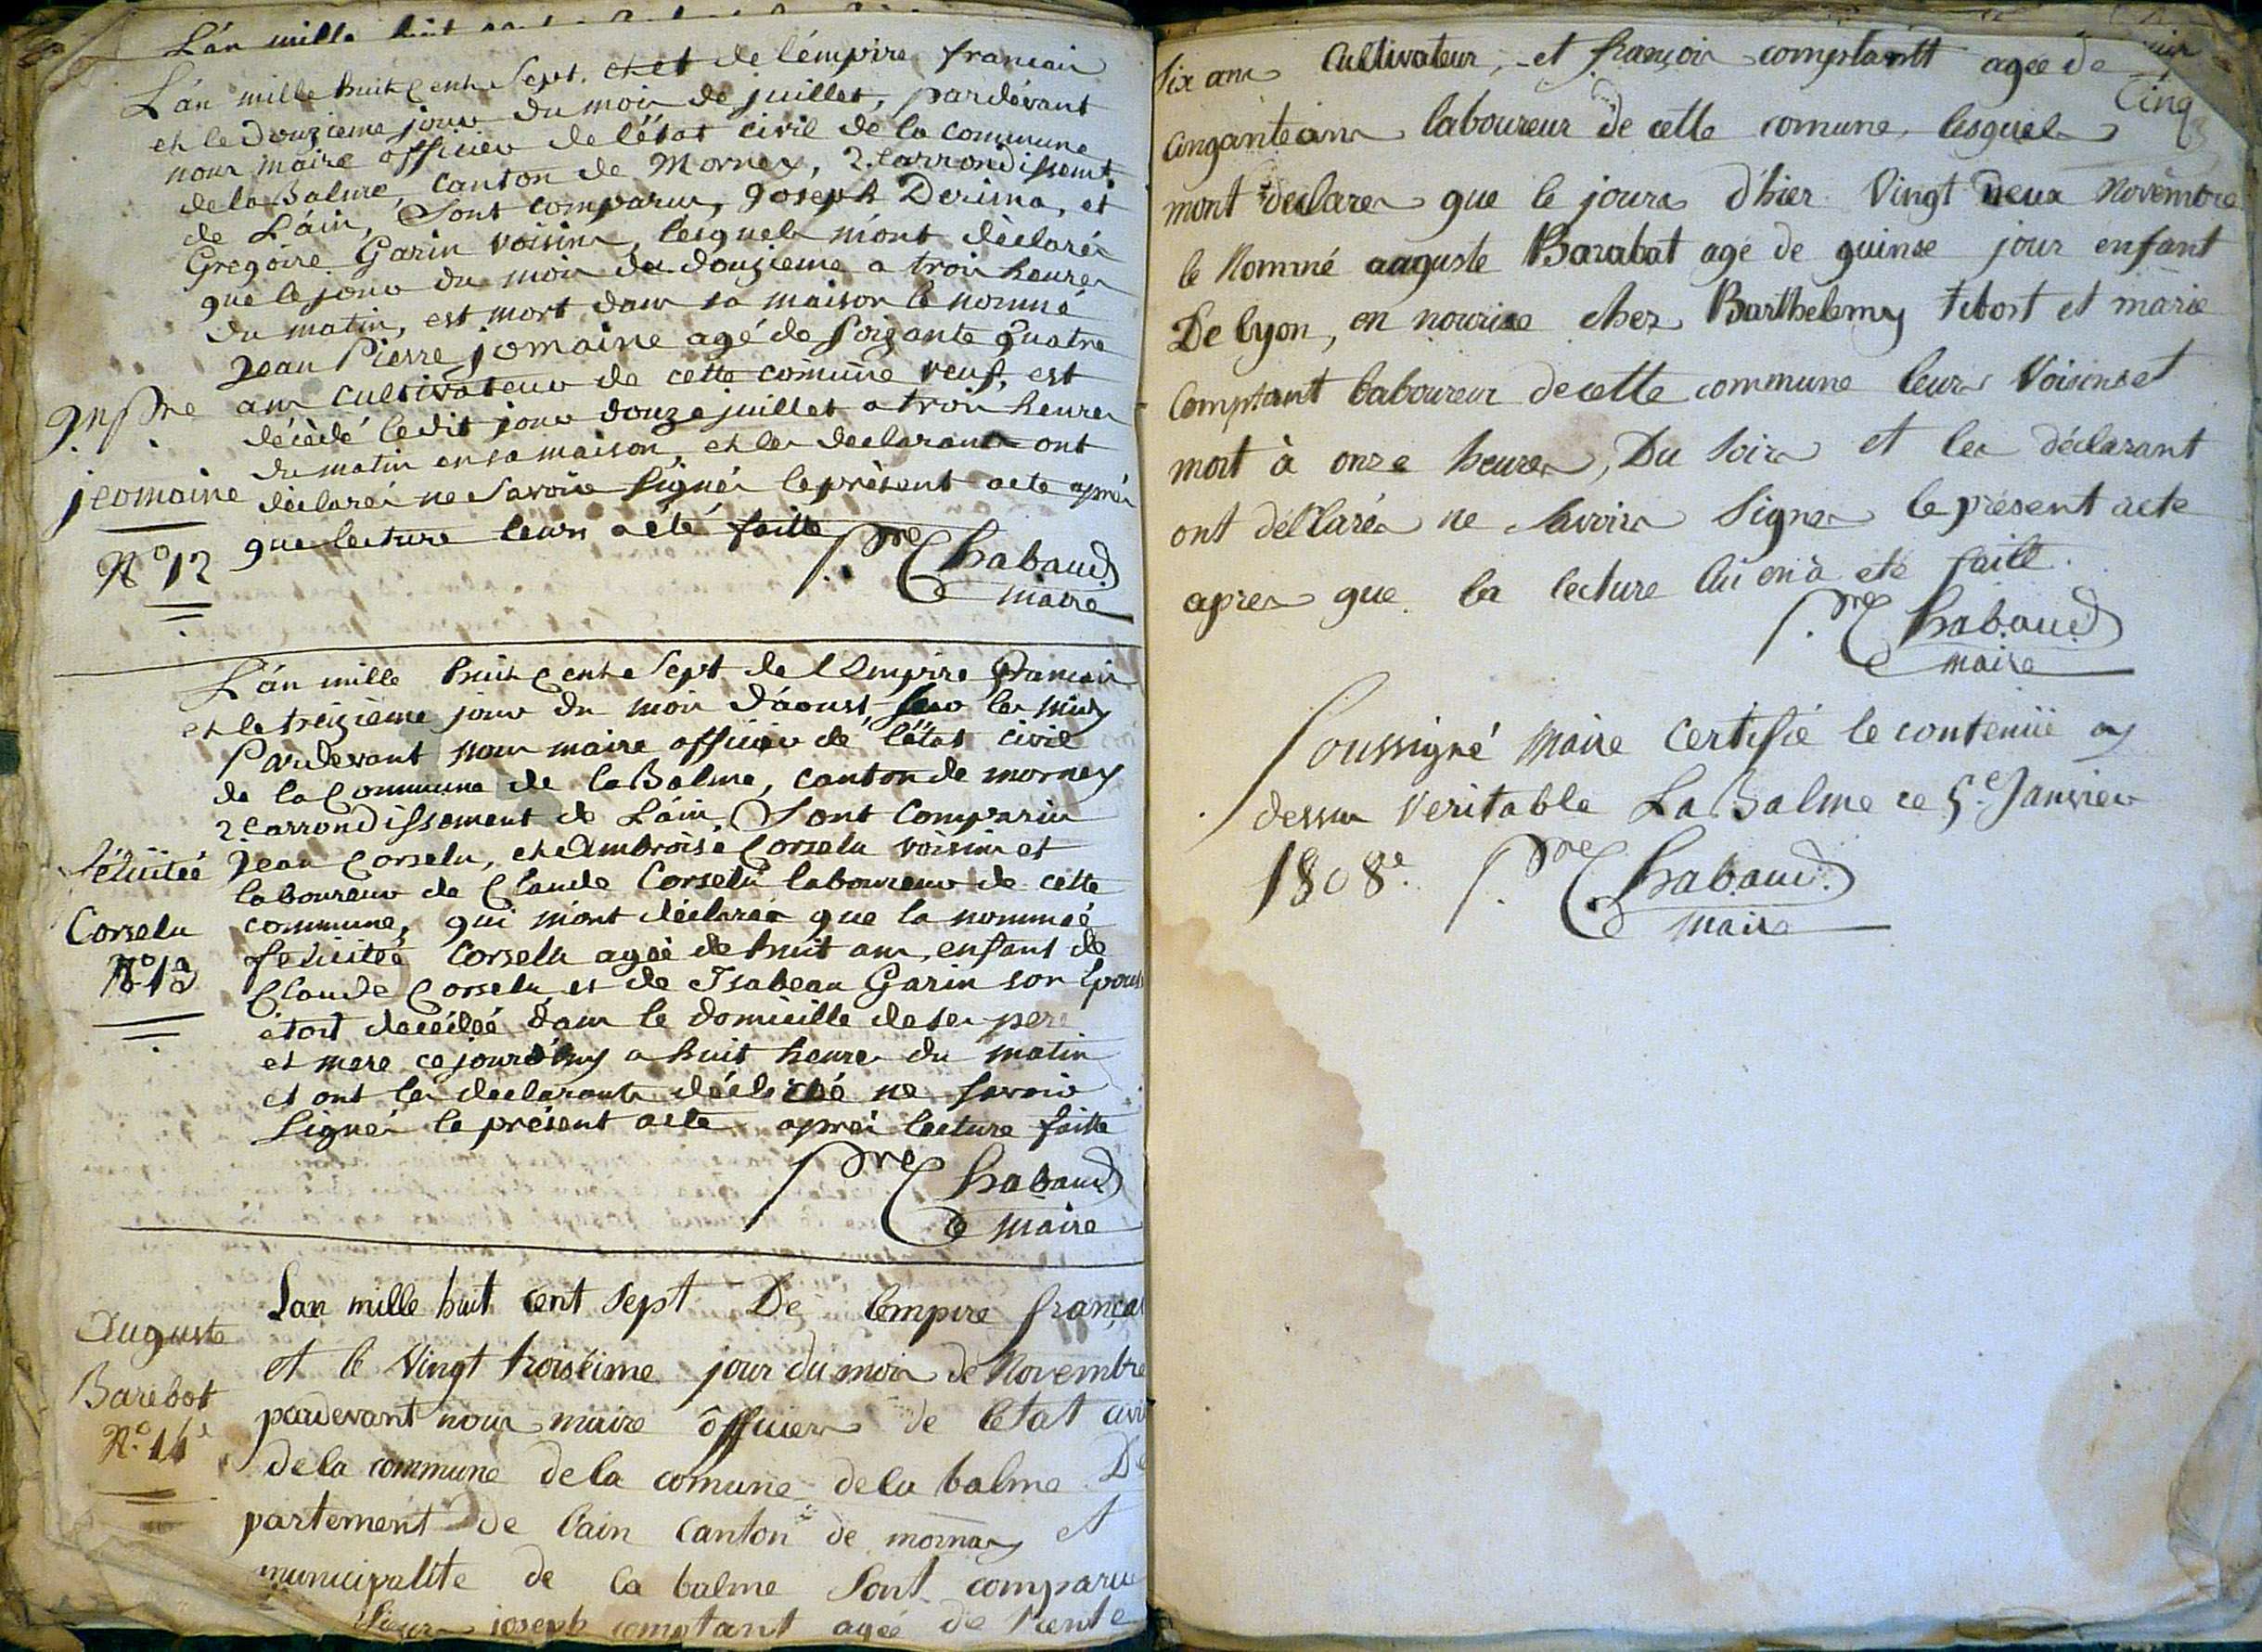 L'an mille huit
L'an mille huit cents sept. et et de l'empire francais
et le douzieme jour du mois de juillet, pardevant
nous maire officier de l'état civil de la commune
de la Balme, canton de Mornex, 2. arrondissemt.
de L'ain, Sont comparus, Joseph Derisna, et
Gregoire Garin voisins, lesquels m'ont déclarés
que le jour du mois du douzieme a trois heures
du matin, est mort dans sa maison le nommé
Jean Pierre jomaine agé de soizante quatre
ans cultivateur de cette comune veuf, est
décédé ledit jour douze juillet a trois heures
du matin en sa maison, et les declarants ont
déclarés ne savoir signés le présent acte aprés
que lecture leurs a été faitte
Jn pre
jeomaine
No 12
Pre Chabaud
maire
L'an mille huit cents sept de l'Empire francais
et le treizieme jour du mois d'aoust sur les midy
Pardevant nous maire officier de l'état civil
de la Commune de la Balme, canton de mornex
2 arrondissement de L'ain, Sont Comparus
Jean Corselu, et Ambroise Corselu voisins et
laboureur de Claude Corselu laboureur de cette
commune, qui m'ont déclarés que la nommeé
felicitée Corselu ageé de huit ans, enfant de
Claude Corselu et de Isabeau Garin son Epous
étoit decédeé dans le domicille de ses pere
et mere ce jourd'huy a huit heures du matin
et ont les declarants déclaré ne savoir
signés le présent acte aprés lecture faitte
félicitée
Corselu
No 13
Pre Chabaud
maire
Lan mille huit cent sept De lempire françai
et le Vingt troiséime jour du mois de Novembre
pardevant nous maire officiers de letat civi
dela commune dela comune dela balme De
partement de lain canton de mornay et
municipalite de la balme sont comparus
Sieurs joseph comptant agée de trente
Auguste
Barebot
No 14
Six ans Cultivateur, et françois comptantt ageé de
Cinq
cinqante ans laboureur de cette comune, lesquels
mont declares que le jours d'hier Vingt deux Novembre
le Nommé auguste Barabat agé de quinse jour enfant
De lyon, en nourise chez Barthelemy tibost et marie
Comptant laboureur de cette commune leurs Voisins et
mort à onze heures, Du soirs et les déclarant
ont déclarés ne savoirs signer le présent acte
apres que la lecture lui en à eté faitt.
Pre Chabaud
maire
Soussigné Maire Certifié le contenüe cy
dessus Veritable La Balme ce 5.e Janvier
1808e. Pre Chabaud
maire